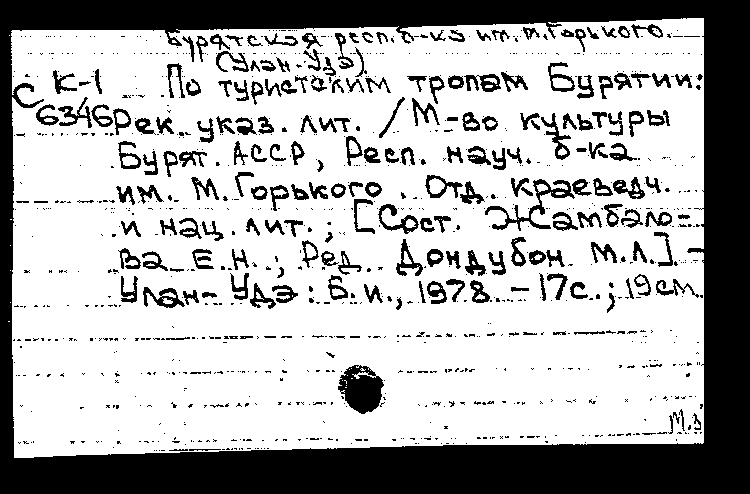 Бурятская респ. б-ка им. М. Горького.
(Улан-Удэ)
К-1 По туристским тропам Бурятии:
С 6346 Рек. указ. лит. / М-во культуры
Бурят. АССР, Респ. науч. б-ка
им. М. Горького. Отд. краеведч.
и нац. лит.; [Сост. Жамбало-
ва Е.Н.; Ред. Дондубон М.Л.] -
Улан-Удэ: Б. и., 1978. - 17с.; 19см.